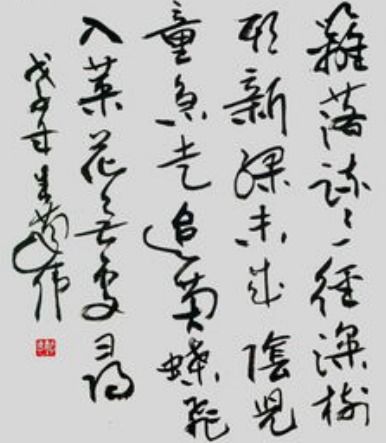 籬落疏々一徑深樹
頭新綠未成陰兒
童急走追黃蝶飛
入菜花無處尋
戊子年